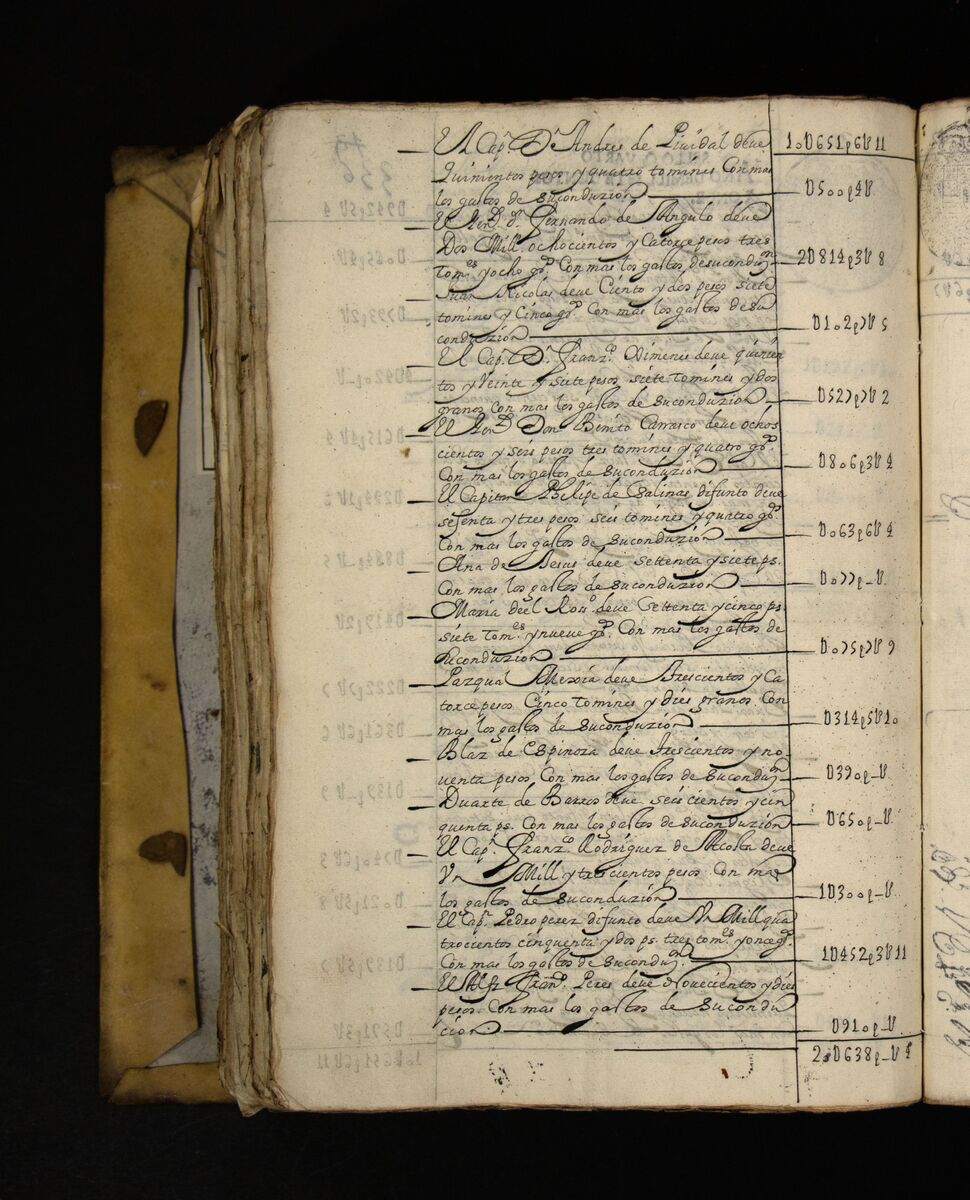 El Cap.ⁿ D.ⁿ Andres de Pividal deve
10U651p6U11
Quinientos pesos y quatro tomines Con mas
los gastos de su conduzion
U500p4U
El Xen.ˡ D.ⁿ Fernando de Angulo deve
Dos Mill ochocientos y Catorze pesos tres
tom.es y ocho g.s Con mas los gastos de su conduz.on
2U814p3U8
Juan Nicolas deve Ciento y dos pesos siete
tomines y Cinco g.s Con mas los gastos de su
conduzion
U102p7U5
El Cap.ⁿ D.ⁿ Franz.co Ximenes deve quinien
tos y Veinte y siete pesos siete tomines y dos
granos Con mas los gastos de su conduzion
U527p7U2
El Xen.ˡ Don Benito Carrasco deve ochos
cientos y seis pesos tres tomines y quatro g.s
Con mas los gastos de su conduzion
U806p3U4
El Capitan Phelipe de Salinas difunto deve
sesenta y tres pesos seis tomines y quatro g.s
Con mas los gastos de su conduzion
U063p6U4
Ana de Jesus deve settenta y siete ps.
Con mas los gastos de su conduzion
U077p_U
Maria del Ros.o deve settenta y cinco ps.
siete tom.es y nueve g.s Con mas los gastos de
su conduzion
U075p7U9
Pazqual Mexia deve trescientos y Ca
torze pesos Cinco tomines y dies granos Con
mas los gastos de su conduzion
U314p5U10
Blaz de Espinoza deve trescientos y no
venta pesos Con mas los gastos de su conduz.on
U390p_U
Duarte de Barros deve seis cientos y cin
quenta ps. Con mas los gastos de su conduzion
U650p_U
El Cap.ⁿ Franz.co Rodriguez de Acosta deve
Vn Mill y trescientos pesos Con mas
los gastos de su conduzion
1U300p_U
El Cap.ⁿ Pedro perez difunto deve Vn Mill qua
trocientos cinquenta y dos ps. tres tom.es y onze g.s
Con mas los gastos de su conduz.on
1U452p3U11
El Alfz Fran.co Peres deve Novecientos y dies
pesos Con mas los gastos de su condu
cion
U910p_U
20U638p_U5